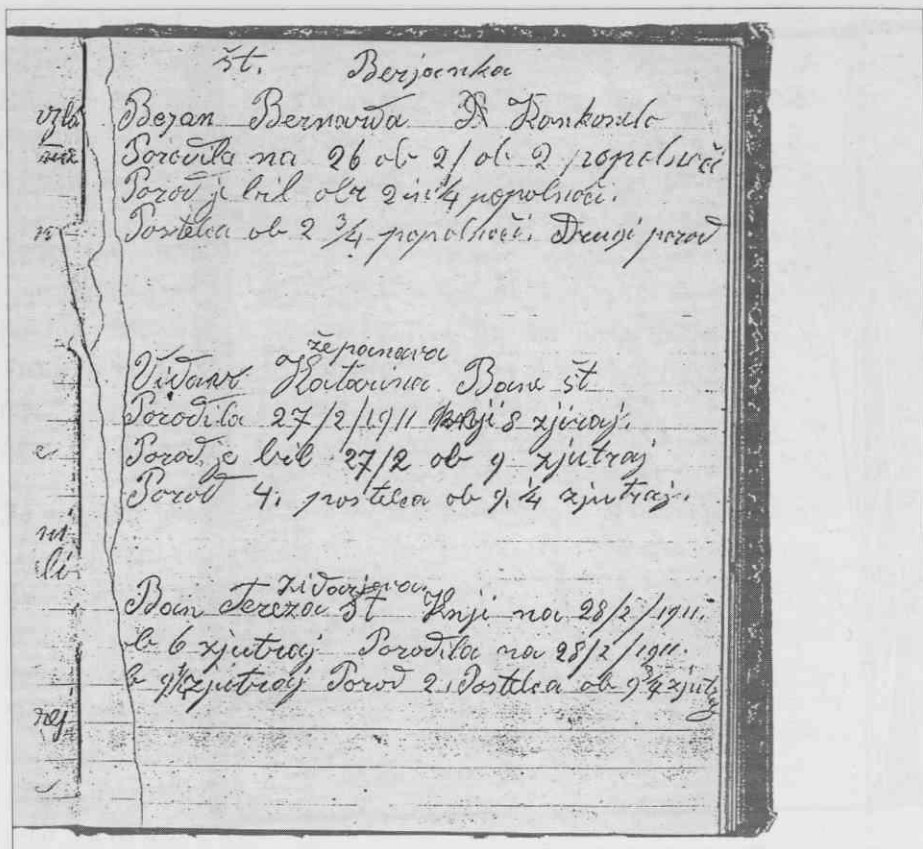 št. Berjanka
Bezan Bernarda
Porodila na 26 ob 2/ ob 2 popolnoči
Porod je bil 2 in 1/4 popolnoči.
Postelca ob 2 3/4 popolnoči. Drugi porod
žepanava
Vidawr Katarina Bane št
Porodila 27/2/1911 8 zjuraj.
Porod je bil 27/2 ob 9 zjutraj
Porod 4. postelca ob 9. 1/4 zjutraj.
Zidarjova
Ban Tereza št Knji na 28/2/1911.
ob 6 zjutraj Porodila na 28/2/1911.
zjutraj Porod 2. Postelca ob 9 3/4 zjutraj